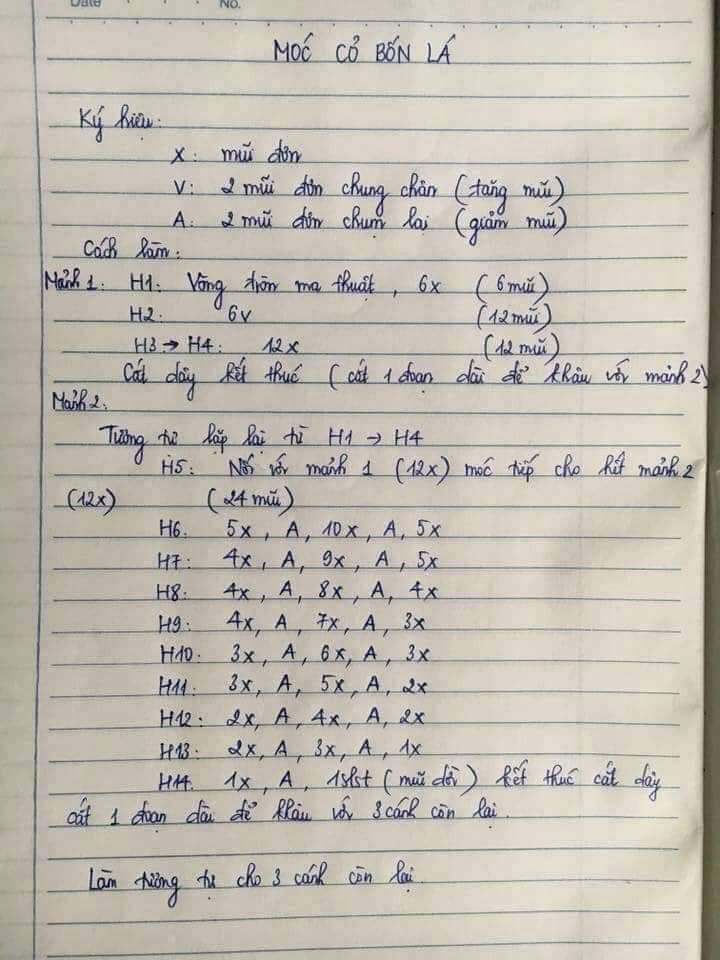 Date No.
MOC CỎ BỐN LÁ
Ký hiệu:
X: mũi đơn
V: 2 mũi đơn chung chân (tăng mũi)
A: 2 mũi đơn chụm lại (giảm mũi)
Cách làm:
Mảnh 1: H1: Vòng tròn ma thuật, 6x (6 mũi)
H2: 6v (12 mũi)
H3 → H4: 12x (12 mũi)
Cắt dây kết thúc (cắt 1 đoạn dài để khâu với mảnh 2)
Mảnh 2:
Tương tự lặp lại từ H1 → H4
H5: Nối với mảnh 1 (12x) móc tiếp cho hết mảnh 2
(12x) (24 mũi)
H6. 5x, A, 10x, A, 5x
H7: 4x, A, 9x, A, 5x
H8: 4x, A, 8x, A, 4x
H9: 4x, A, 7x, A, 3x
H10: 3x, A, 6x, A, 3x
H11: 3x, A, 5x, A, 2x
H12: 2x, A, 4x, A, 2x
H13: 2x, A, 3x, A, 1x
H14. 1x, A, 1slst (mũi dời) kết thúc cắt dây
cắt 1 đoạn dài để khâu với 3 cánh còn lại.
Làm tương tự cho 3 cánh còn lại.